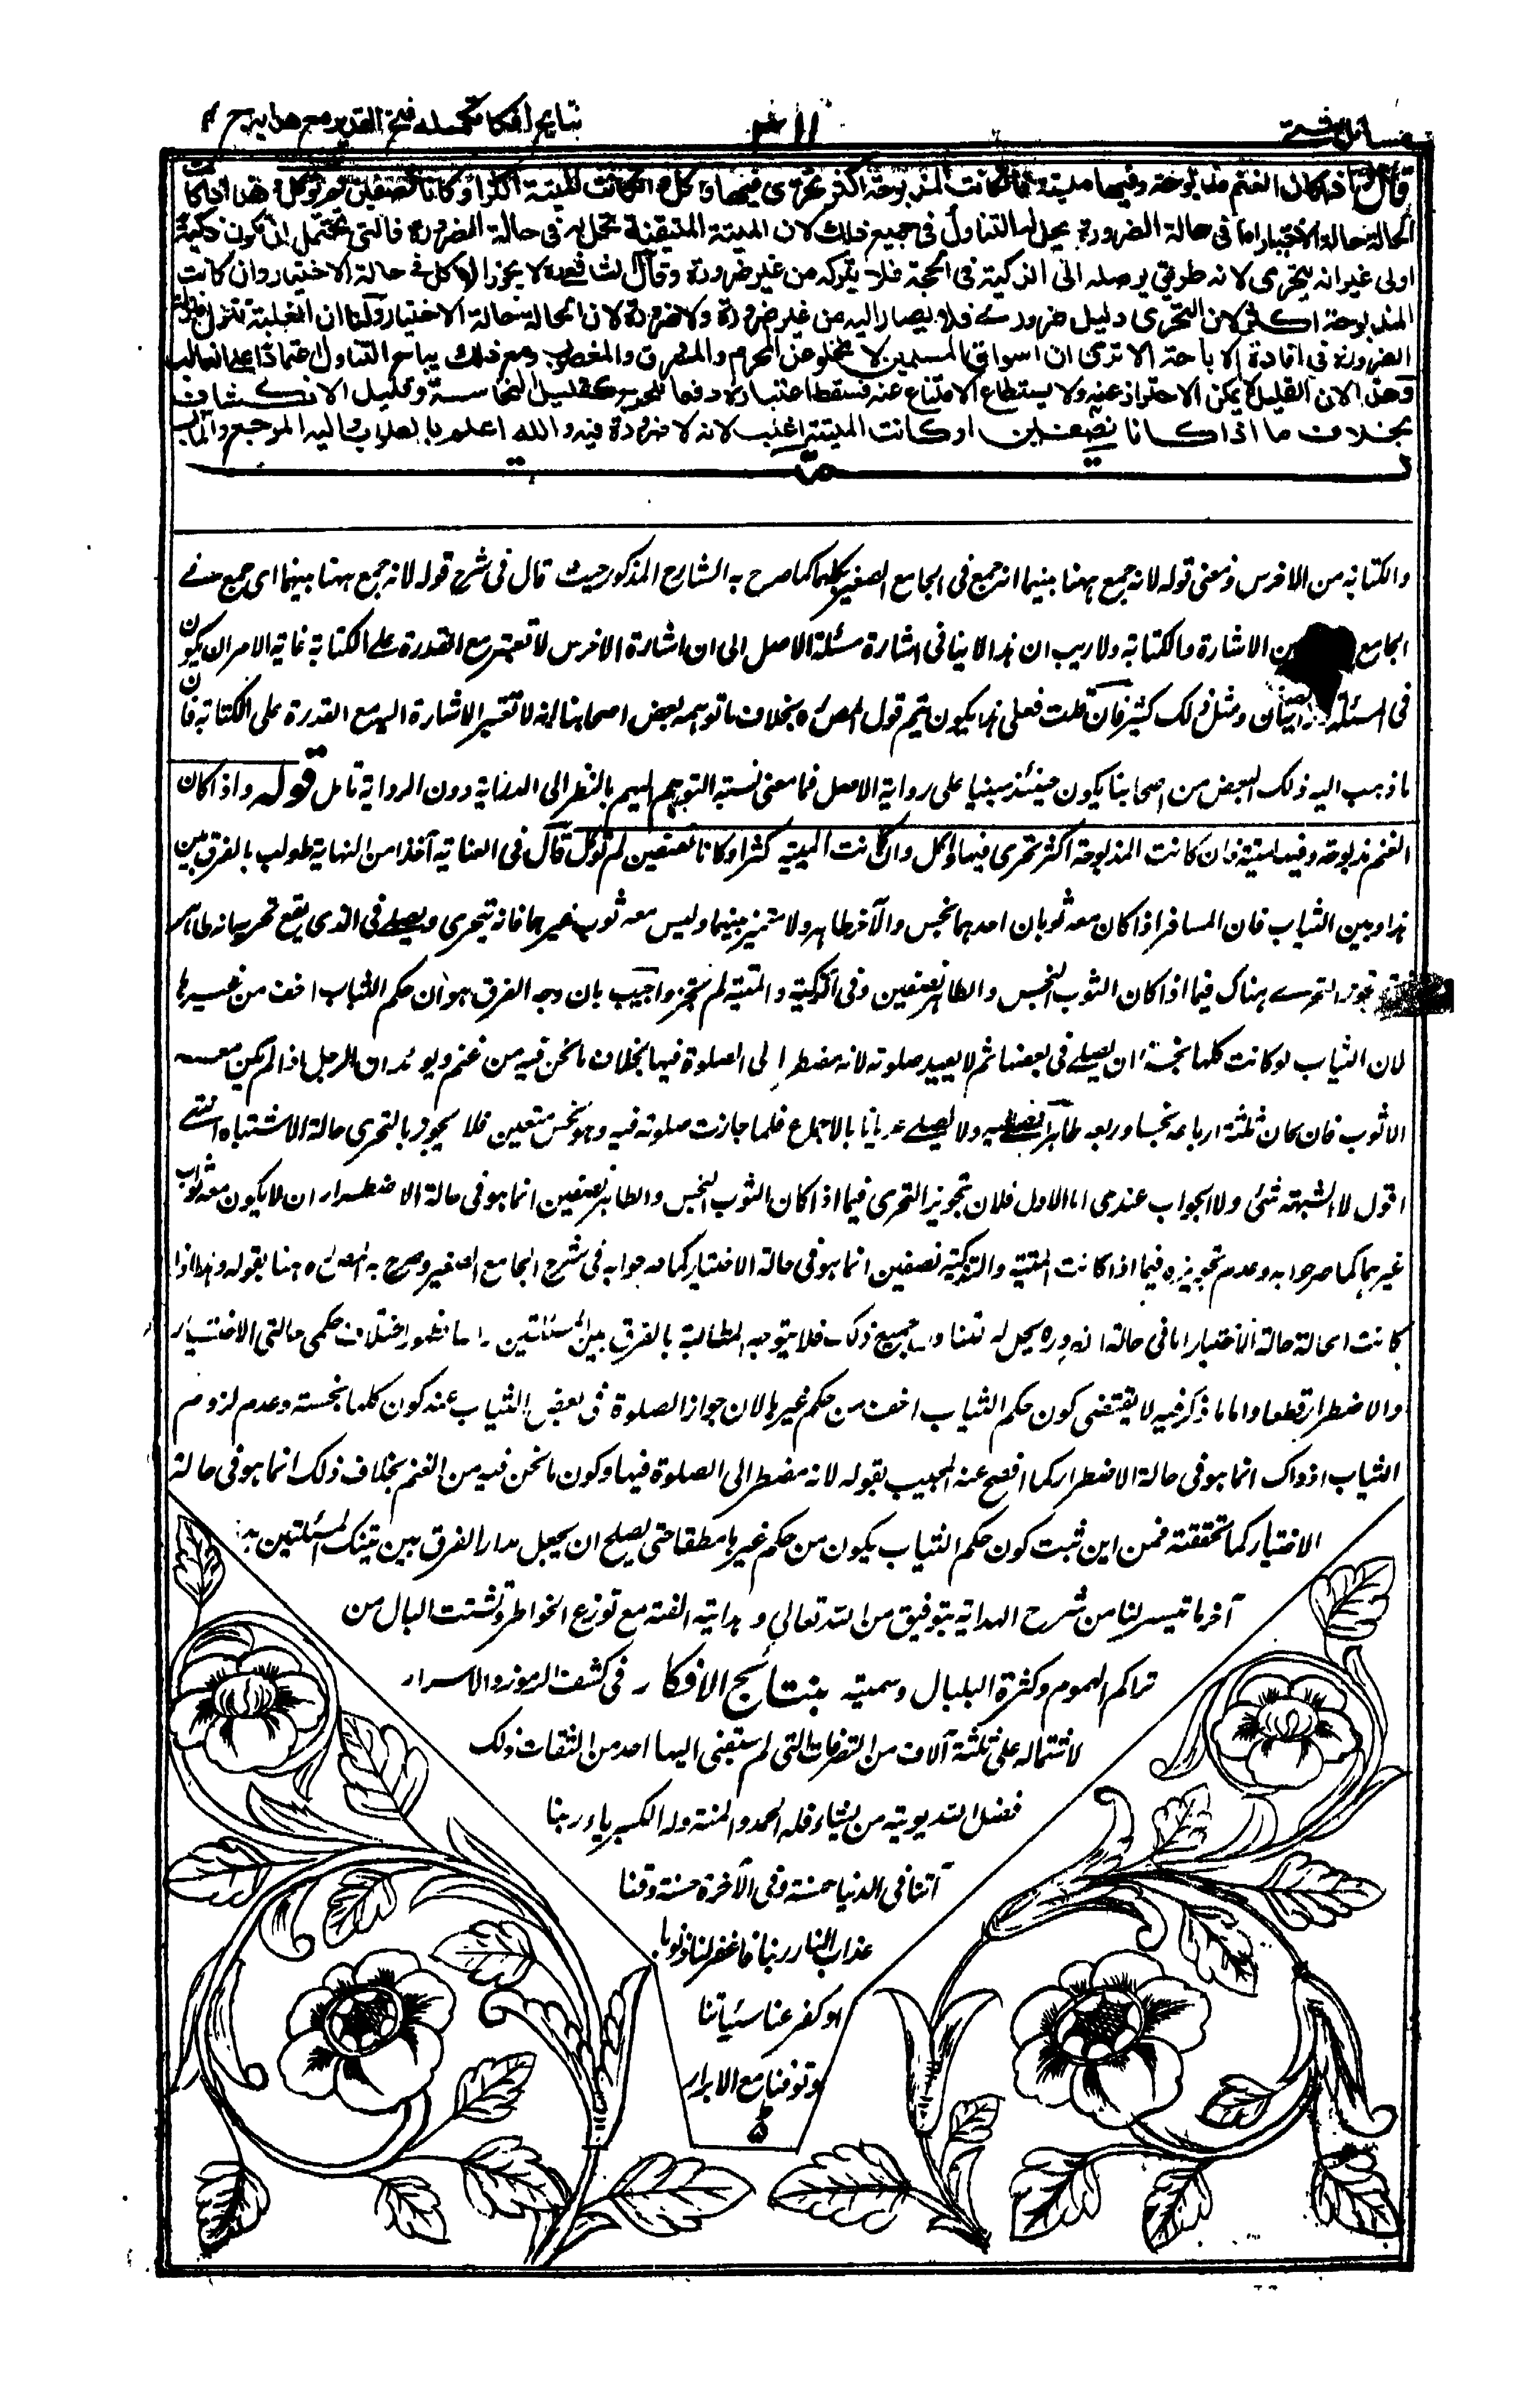 مسائل شتى
نتایج افکار تکملہ فتح القدیر مع ھدایہ ج ۴
قال واذا كان الغنم مذبوحة وفيها ميتة فان كانت المذبوحة اكثر تحرى فيها واكل وان كانت الميتة اكثر او كانا نصفين لم توكل وهذا اذا كانت
الحالة حالة الاختيار اما فى حالة الضرورة يحل له التناول فى جميع ذلك لان الميتة المتيقنة تحل له فى حالة الضرورة فالتى يحتمل ان تكون ذكية
اولى غير انه يتحرى لانه طريق يوصله الى الذكية فى الجملة فلا يتركه من غير ضرورة وقال الشافعى رح لا يجوز الاكل فى حالة الاختيار وان كانت
المذبوحة اكثر لان التحرى دليل ضرورى فلا يصار اليه من غير ضرورة ولا ضرورة لان الحالة حالة الاختيار ولنا ان الغلبة تنزل منزلة
الضرورة فى افادة الاباحة الا ترى ان اسواق المسلمين لا تخلو عن المحرم والمسروق والمغصوب ومع ذلك يباح التناول اعتمادا على الغالب
وهذا لان القليل لا يمكن الاحتراز عنه ولا يستطاع الامتناع عنه فسقط اعتباره دفعا للحرج كقليل النجاسة وقليل الانكشاف
بخلاف ما اذا كانا نصفين او كانت الميتة اغلب لانه لا ضرورة فيه والله اعلم بالصواب واليه المرجع والمآب
والكتابة من الاخرس ومعنى قوله لانه جمع ههنا بينهما انه جمع فى الجامع الصغير بكلها كما صرح به الشارح المذكور حيث قال فى شرح قوله لانه جمع ههنا بينهما اى جمع فى
الجامع بين الاشارة والكتابة ولا ريب ان هذا لا ينافى اشارة مسئلة الاصل الى ان اشارة الاخرس لا تعتبر مع القدرة على الكتابة غاية الامر ان يكون
فى المسئلة روايتان ومثل ذلك كثير فان قلت فعلى هذا يكون يتم قول المص رح بخلاف ما توهمه بعض اصحابنا انه لا تعتبر الاشارة اليه مع القدرة على الكتابة فان
ما ذهب اليه ذلك البعض من اصحابنا يكون حينئذ مبنيا على رواية الاصل فما معنى نسبة التوهم اليهم بالنظر الى الدراية دون الرواية تامل قوله واذا كان
الغنم مذبوحة وفيها ميتة فان كانت المذبوحة اكثر تحرى فيها واكل وان كانت الميتة اكثر او كانا نصفين لم توكل قال فى العناية آخذا من النهاية طولب بالفرق بين
هذا وبين الثياب فان المسافر اذا كان معه ثوبان احدهما نجس والآخر طاهر ولا متميز بينهما وليس معه ثوب غيرهما فانه يتحرى ويصلى فى الذى يقع تحريه انه طاهر
تجوز التحرى هناك فيما اذا كان الثوب النجس والطاهر نصفين وفى الذكية والميتة لم تجز واجيب بان وجه الفرق هو ان حكم الثياب اخف من غيرها
لان الثياب لو كانت كلها نجسة ان يصلى فى بعضها ثم لا يعيد صلوته لانه مضطر الى الصلوة فيها بخلاف ما نحن فيه من غنم ويؤيده ان الرجل اذا لم يكن معه
الا ثوب فان كان ثلثة ارباعه نجسا وربعه طاهر يصلى فيه ولا يصلى عريانا بالاجماع فلما جازت صلوته فيه وهو نجس متعين فلا يجوز بالتحرى حالة الاشتباه انتهى
اقول لا الشبهة شئ ولا الجواب عندى اما الاول فلان تجويز التحرى فيما اذا كان الثوب النجس والطاهر نصفين انما هو فى حالة الاضطرار ان لا يكون معه ثواب
غيرهما كما صرحوا به وعدم تجويزه فيما اذا كانت الميتة والذكية نصفين انما هو فى حالة الاختيار كما صرحوا به فى شرح الجامع الصغير وصرح به المص رح ههنا بقوله وهذا اذا
كانت الحالة حالة الاختيار اما فى حالة الضرورة يحل له تناول جميع ذلك فلا يتوجه المطالبة بالفرق بين المسئلتين راسا لظهور اختلاف حكمى حالتى الاختيار
والاضطرار قطعا واما ما ذكر فيه لا يقتضى كون حكم الثياب اخف من حكم غيرها لان جواز الصلوة فى بعض الثياب عند كون كلها نجسة وعدم لزوم
الثياب اذ ذاك انما هو فى حالة الاضطرار كما افصح عنه المجيب بقوله لانه مضطر الى الصلوة فيها وكون ما نحن فيه من الغنم بخلاف ذلك انما هو فى حالة
الاختيار كما تحققته فمن اين ثبت كون حكم الثياب يكون من حكم غيرها مطقا حتى يصلح ان يجعل مدار الفرق بين تينك المسئلتين هذا
آخر ما تيسر لنا من شرح الهداية بتوفيق من الله تعالى و هدايته الفته مع توزع الخواطر وتشتت البال من
تراكم الهموم وكثرة البلبال وسميته بنتائج الافكار فى كشف الرموز والاسرار
لاشتماله على ثلثة آلاف من التصرفات التى لم يسبقنى اليها احد من الثقات ذلك
فضل الله يوتيه من يشاء فله الحمد والمنة وله الكبرياء ربنا
آتنا فى الدنيا حسنة وفى الآخرة حسنة وقنا
عذاب النار ربنا فاغفر لنا ذنوبنا
وكفر عنا سيئاتنا
وتوفنا مع الابرار